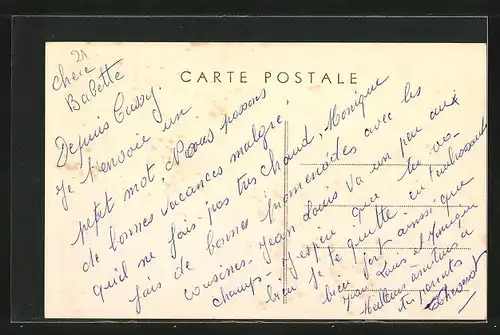 21
CARTE POSTALE
chere
Babette
Depuis Cussy.
Je t'envoie un
petit mot. Nous passons
de bonnes vacances malgré
qu'il ne fais pas tres chaud, Monique
fais de bonnes promenades avec les
cousines. Jean Louis va un peu aux
champs. J'espère que tu va
bien je te quitte en t'embrassant
bien fort ainsi que
Jean Louis et Monique
Meilleures amitiées a
tes parents